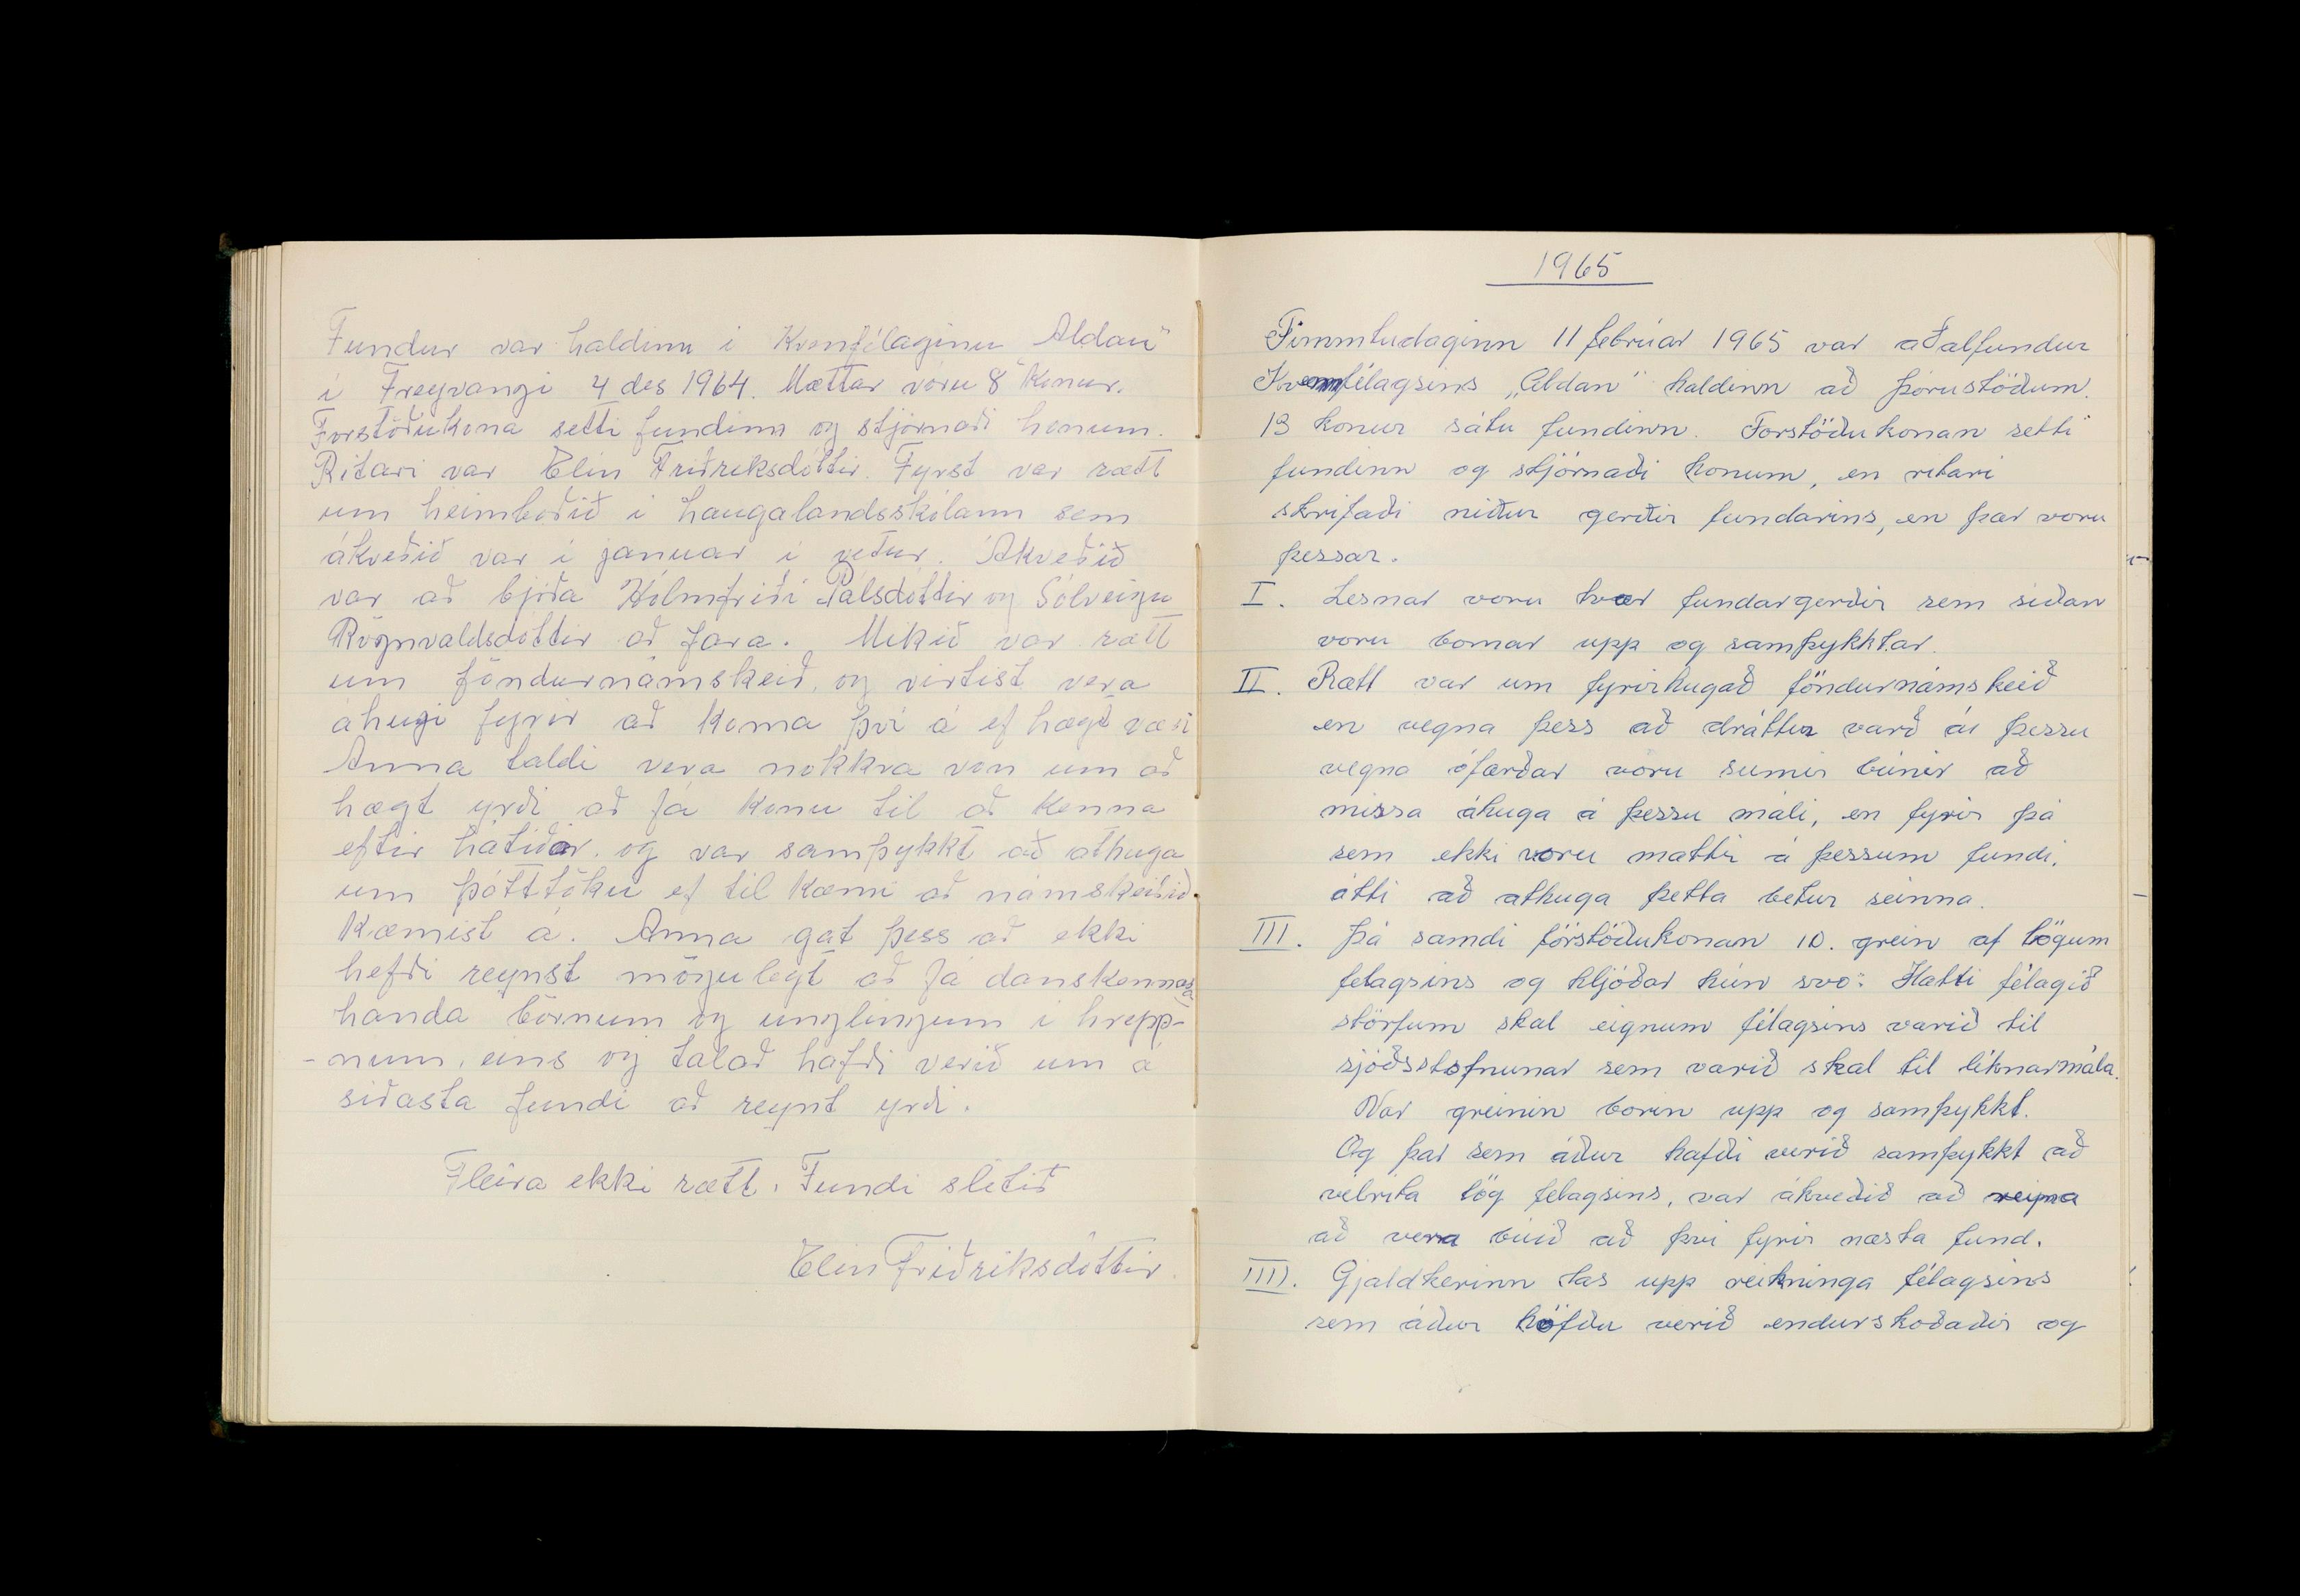 Fundur var haldinn i Kvenfélaginu Aldan"
i Freyvangi 4 des 1964. Mættar voru 8 Konur.
Forstöðukona setti fundinn og stjórnaði honum.
Ritari var Elín Friðreksdóttir. Fyrst var rætt
um heimboðið i haugalandsskólann sem
ákveðið var i januar i vetur. Ákveðið
var að bjóða Hólmfriði Pálsdóttir og Sólveigu
Rögnvaldsdóttir að fara. Mikið var rætt
um föndurnámskeið, og virtist vera
áhugi fyrir að koma því á ef hægt væri
Anna taldi vera nokkra von um að
hægt yrði að fá konu til að kenna
eftir hátiðar. og var samþykkt að athuga
um þátttöku ef til kæmi að námskeiðið
kæmist á. Anna gat þess að ekki
hefði reynst mögulegt að fá danskennara
handa börnum og unglingum i hrepp-
-num, eins og talað hafði verið um á
siðasta fundi að reynt yrði.
Fleira ekki rætt. Fundi slitið
Elin Friðriksdóttir
1965
Fimmtudaginn 11 febrúar 1965 var aðalfundur
Kvenfélagsins „Aldan" haldinn að Þórustöðum.
13 konur sátu fundinn. Forstöðukonan setti
fundinn og stjórnaði honum, en ritari
skrifaði niður gerðir fundarins, en þær voru
þessar.
I. Lesnar voru tvær fundargerðir sem siðan
voru bornar upp og samþykktar.
II. Rætt var um fyrirhugað föndurnámskeið
en vegna þess að dráttur varð á þessu
vegna ófærðar voru sumir búnir að
missa áhuga á þessu máli, en fyrir þá
sem ekki voru mættir á þessum fundi,
átti að athuga þetta betur seinna.
III. Þá samdi forstöðukonan 10. grein af lögum
félagsins og hljóðar hún svo: Hætti félagið
störfum skal eignum félagsins varið til
sjóðsstofnunar sem varið skal til liknarmála.
Var greinin borin upp og samþykkt.
Og þar sem áður hafði verið samþykkt að
vélrita lög félagsins, var ákveðið að reyna
að vera búið að þvi fyrir næsta fund.
IIII. Gjaldkerinn las upp reikninga félagsins
sem áður höfðu verið endurskoðaðir og